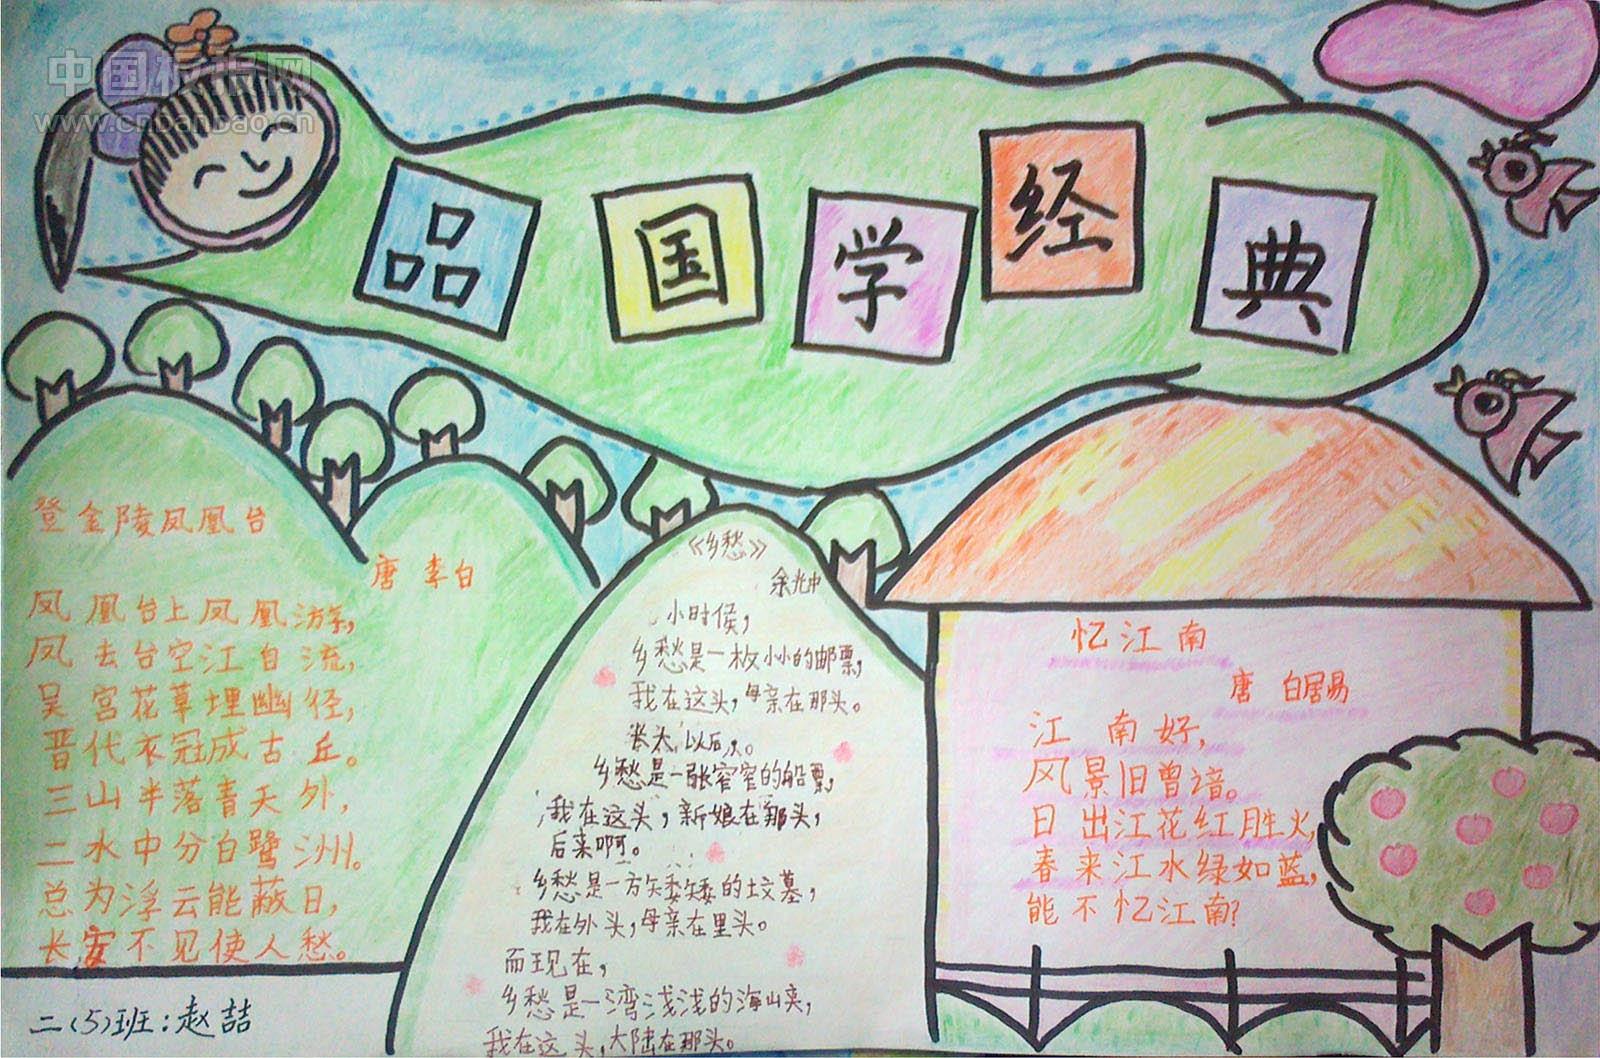 中国板报网
www.cnbanbao.cn
品国学经典
登金陵凤凰台
唐 李白
凤凰台上凤凰游,
凤去台空江自流,
吴宫花草埋幽径,
晋代衣冠成古丘。
三山半落青天外,
二水中分白鹭洲。
总为浮云能蔽日,
长安不见使人愁。
二(5)班:赵喆
《乡愁》
余光中
小时候,
乡愁是一枚小小的邮票,
我在这头,母亲在那头。
长大以后,。
乡愁是一张窄窄的船票,
我在这头,新娘在那头,
后来啊。
乡愁是一方矮矮的坟墓,
我在外头,母亲在里头。
而现在,
乡愁是一湾浅浅的海峡,
我在这头,大陆在那头。
忆江南
唐 白居易
江南好,
风景旧曾谙。
日出江花红胜火,
春来江水绿如蓝,
能不忆江南?